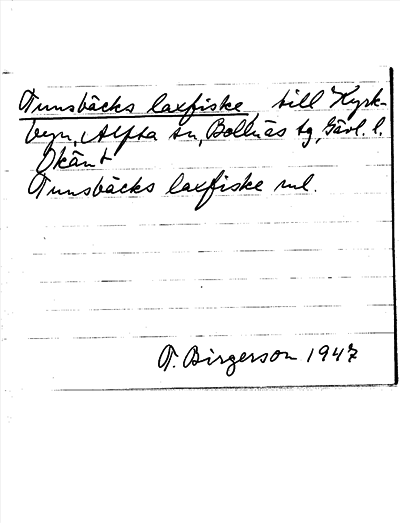 Tunsbäcks laxfiske, till Kyrk-
byn, Alfta sn, Bollnäs tg, Gävl. l.
Okänt
Tunsbäcks laxfiske ml.
T. Birgerson 1947